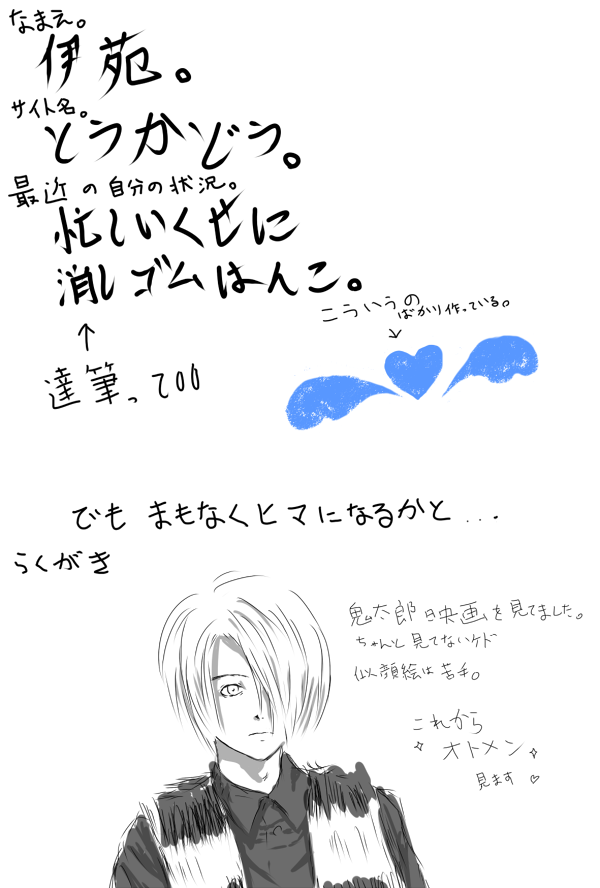 なまえ。
伊苑。
サイト名。
とうかどう。
最近の自分の状況。
忙しいくせに
消しゴムはんこ。
こういうの
ばかり作っている。
達筆って
でも まもなくヒマになるかと...
らくがき
鬼太郎 映画を見てました。
ちゃんと見てないケド
似顔絵は苦手。
これから
オトメン
見ます♡